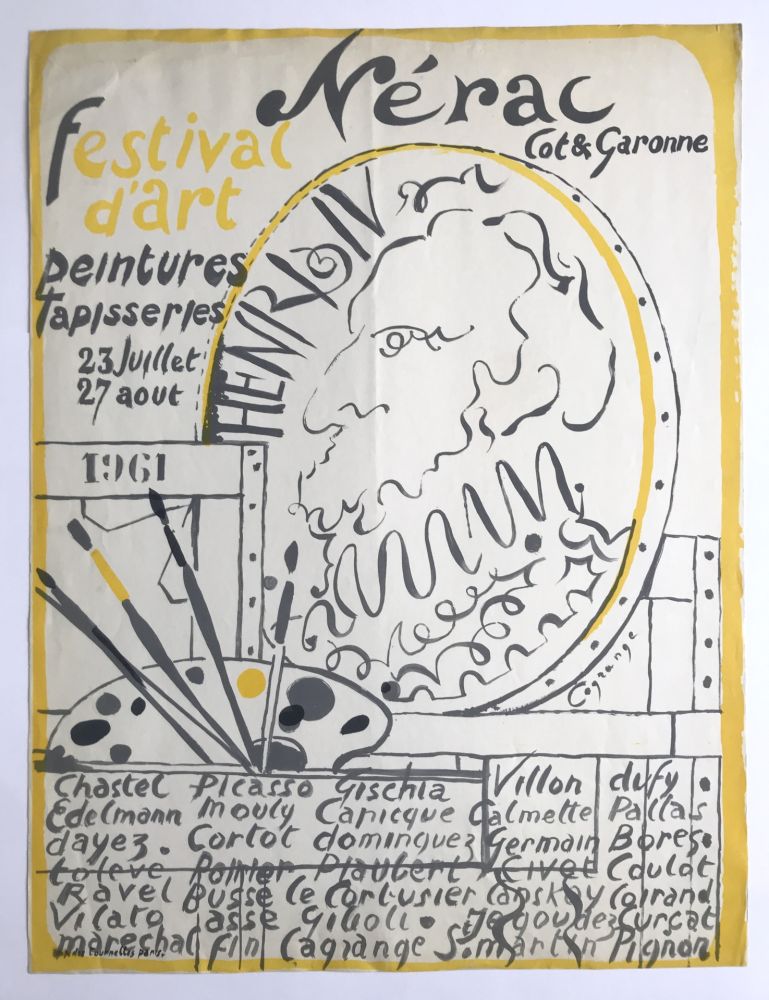 Nérac
Lot & Garonne
festival
d'art
peintures
tapisseries
23 Juillet
27 aout
HENRI IV
1961
Lagrange
Chastel Picasso Gischia Villon dufy
Edelmann Mouly Capicque Calmette Pallas
dayez. Cortot dominguez Germain Bores
Plaubert Civet Coulot
Ravel Busse le Corbusier Lanskoy Coirand
Vilato asse Gilioli Lurçat
maréchal fin Lagrange St martin Pignon
tournelles paris.